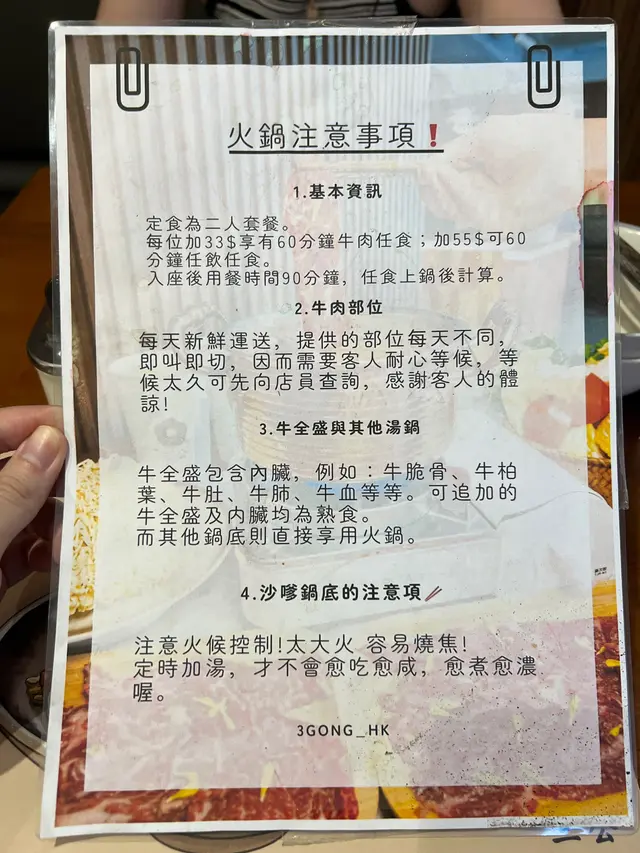 火鍋注意事項❗
1.基本資訊
定食為二人套餐。
每位加33$享有60分鐘牛肉任食；加55$可60
分鐘任飲任食。
入座後用餐時間90分鐘，任食上鍋後計算。
2.牛肉部位
每天新鮮運送，提供的部位每天不同，
即叫即切，因而需要客人耐心等候，等
候太久可先向店員查詢，感謝客人的體
諒!
3.牛全盛與其他湯鍋
牛全盛包含內臟，例如：牛脆骨、牛柏
葉、牛肚、牛肺、牛血等等。可追加的
牛全盛及內臟均為熟食。
而其他鍋底則直接享用火鍋。
4.沙嗲鍋底的注意項
注意火候控制!太大火 容易燒焦!
定時加湯，才不會愈吃愈咸，愈煮愈濃
喔。
3GONG_HK